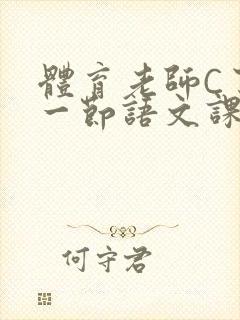 體育老師C
一節語文課
何守君